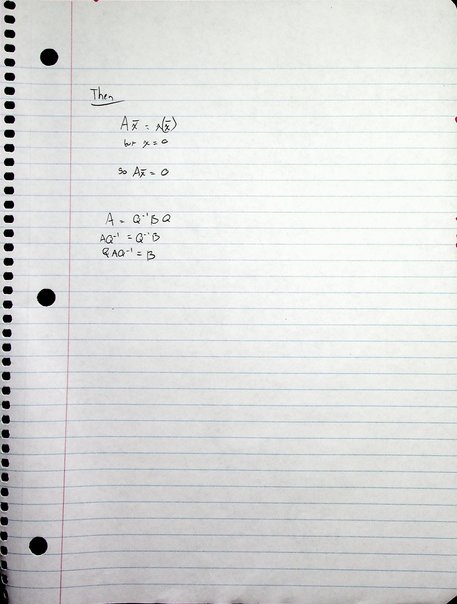 Then
Ax̄ = λ(x̄)
but x = 0
so Ax̄ = 0
A = Q⁻¹BQ
AQ⁻¹ = Q⁻¹B
QAQ⁻¹ = B